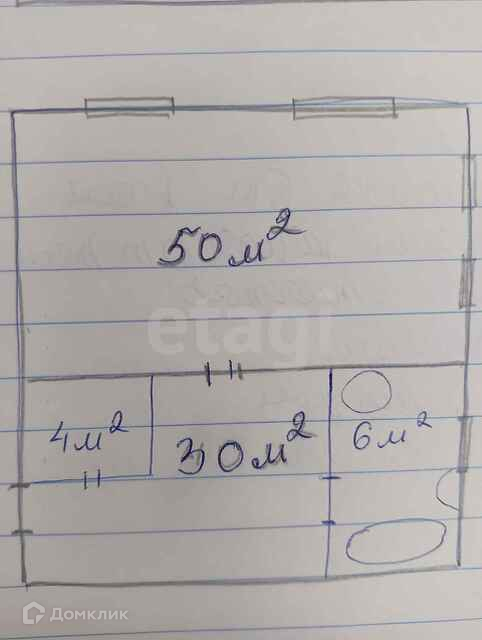 50 м²
etagi
4 м²
30 м²
6 м²
Домклик